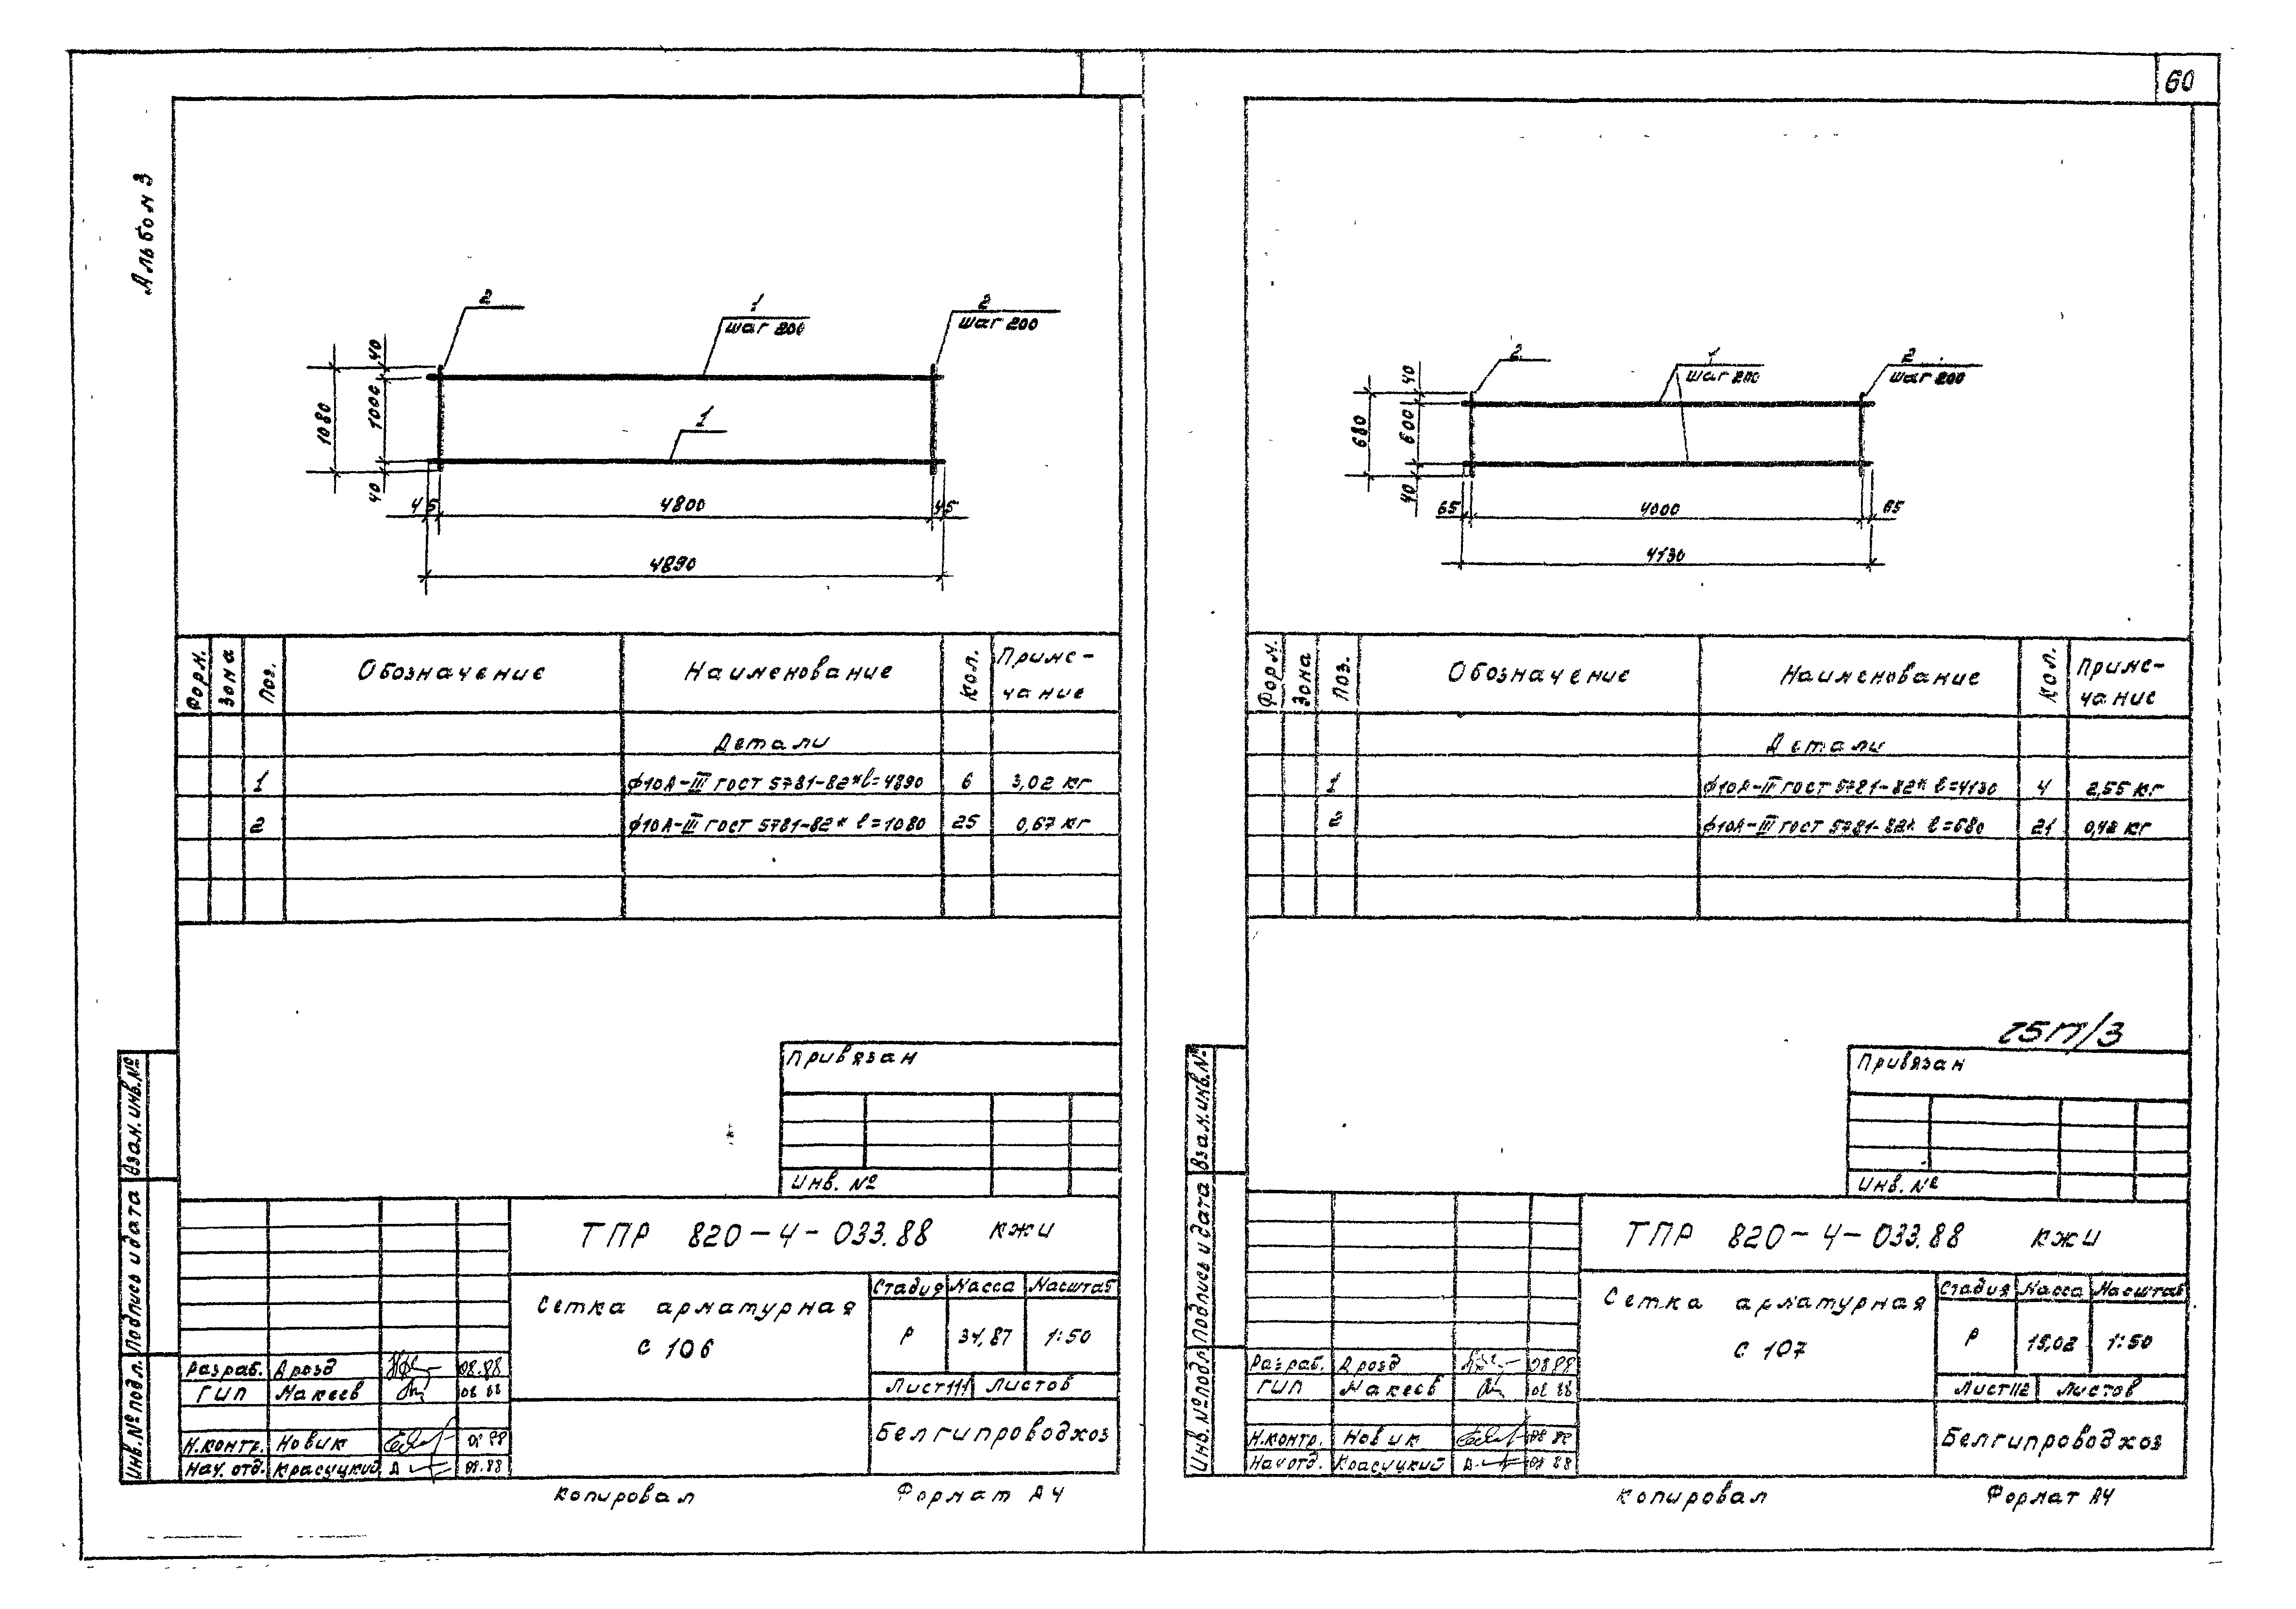 60
Альбом 3
2
1
шаг 200
2
шаг 200
1
40
1000
1080
40
45
4800
45
4890
Форм.
Зона
Поз.
Обозначение
Наименование
Кол.
Приме-
чание
Детали
1 ф10А-III ГОСТ 5781-82* l=4890 6 3,02 кг
2 ф10А-III ГОСТ 5781-82* l=1080 25 0,67 кг
Привязан
Инв. №
Взам. инв. №
Подпись и дата
Инв. № подл.
ТПР 820-4-033.88 КЖИ
Сетка арматурная
С 106
Стадия Масса Масштаб
Р 34,87 1:50
Лист 111 Листов
Белгипроводхоз
Разраб. Дрозд 08.88
ГИП Макеев 08 88
Н.контр. Новик 08 88
Нач. отд. Красуцкий 08.88
Копировал Формат А4
2
1
шаг 200
2
шаг 200
40
600
680
40
65
4000
65
4130
Форм.
Зона
Поз.
Обозначение
Наименование
Кол.
Приме-
чание
Детали
1 ф10А-III ГОСТ 5781-82* l=4130 4 2,55 кг
2 ф10А-III ГОСТ 5781-82* l=680 21 0,42 кг
Привязан
Инв. №
Взам. инв. №
Подпись и дата
Инв. № подл
ТПР 820-4-033.88 КЖИ
Сетка арматурная
С 107
Стадия Масса Масштаб
Р 19,02 1:50
Лист 112 Листов
Белгипроводхоз
Разраб. Дрозд 08 88
ГИП Макеев 08 88
Н.контр. Новик 08 88
Нач отд. Красуцкий 08 88
Копировал Формат А4